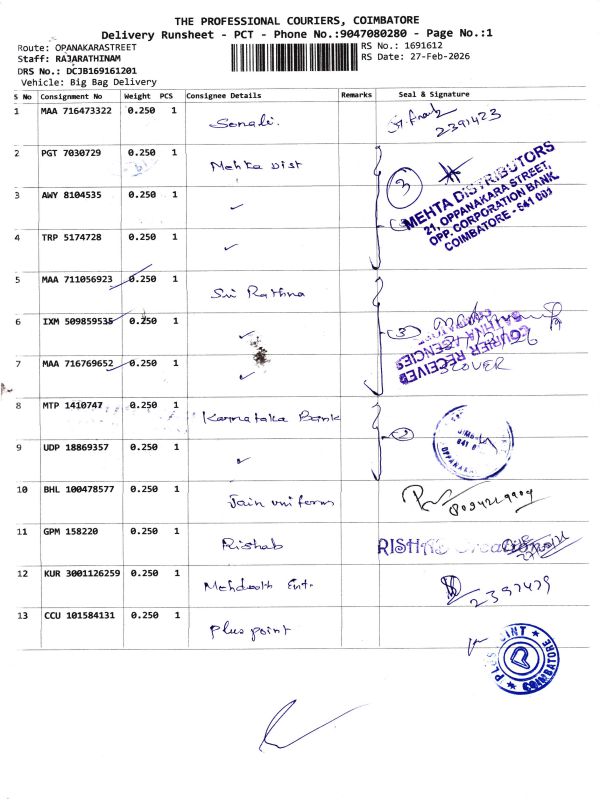 THE PROFESSIONAL COURIERS, COIMBATORE
Delivery Runsheet - PCT - Phone No.:9047080280 - Page No.:1
Route: OPANAKARASTREET
RS No.: 1691612
Staff: RAJARATHINAM
RS Date: 27-Feb-2026
DRS No.: DCJB169161201
Vehicle: Big Bag Delivery
S No Consignment No Weight PCS Consignee Details Remarks Seal & Signature
1 MAA 716473322 0.250 1 Sonali. 2391423
2 PGT 7030729 0.250 1 Mehta Dist 3
MEHTA DISTRIBUTORS
21, OPPANAKARA STREET,
OPP. CORPORATION BANK.
COIMBATORE - 641 001
3 AWY 8104535 0.250 1 ✓
4 TRP 5174728 0.250 1 ✓
5 MAA 711056923 0.250 1 Sri Rathna
6 IXM 509859535 0.250 1 ✓ (3)
COURIER RECEIVED
RATHNA AGENCIES
7 MAA 716769652 0.250 1 ✓
8 MTP 1410747 0.250 1 Karnataka Bank 2
9 UDP 18869357 0.250 1 ✓
10 BHL 100478577 0.250 1 Jain uniforms
11 GPM 158220 0.250 1 Rishab
12 KUR 3001126259 0.250 1 2397479
13 CCU 101584131 0.250 1 Plus point
PLUS POINT
COIMBATORE